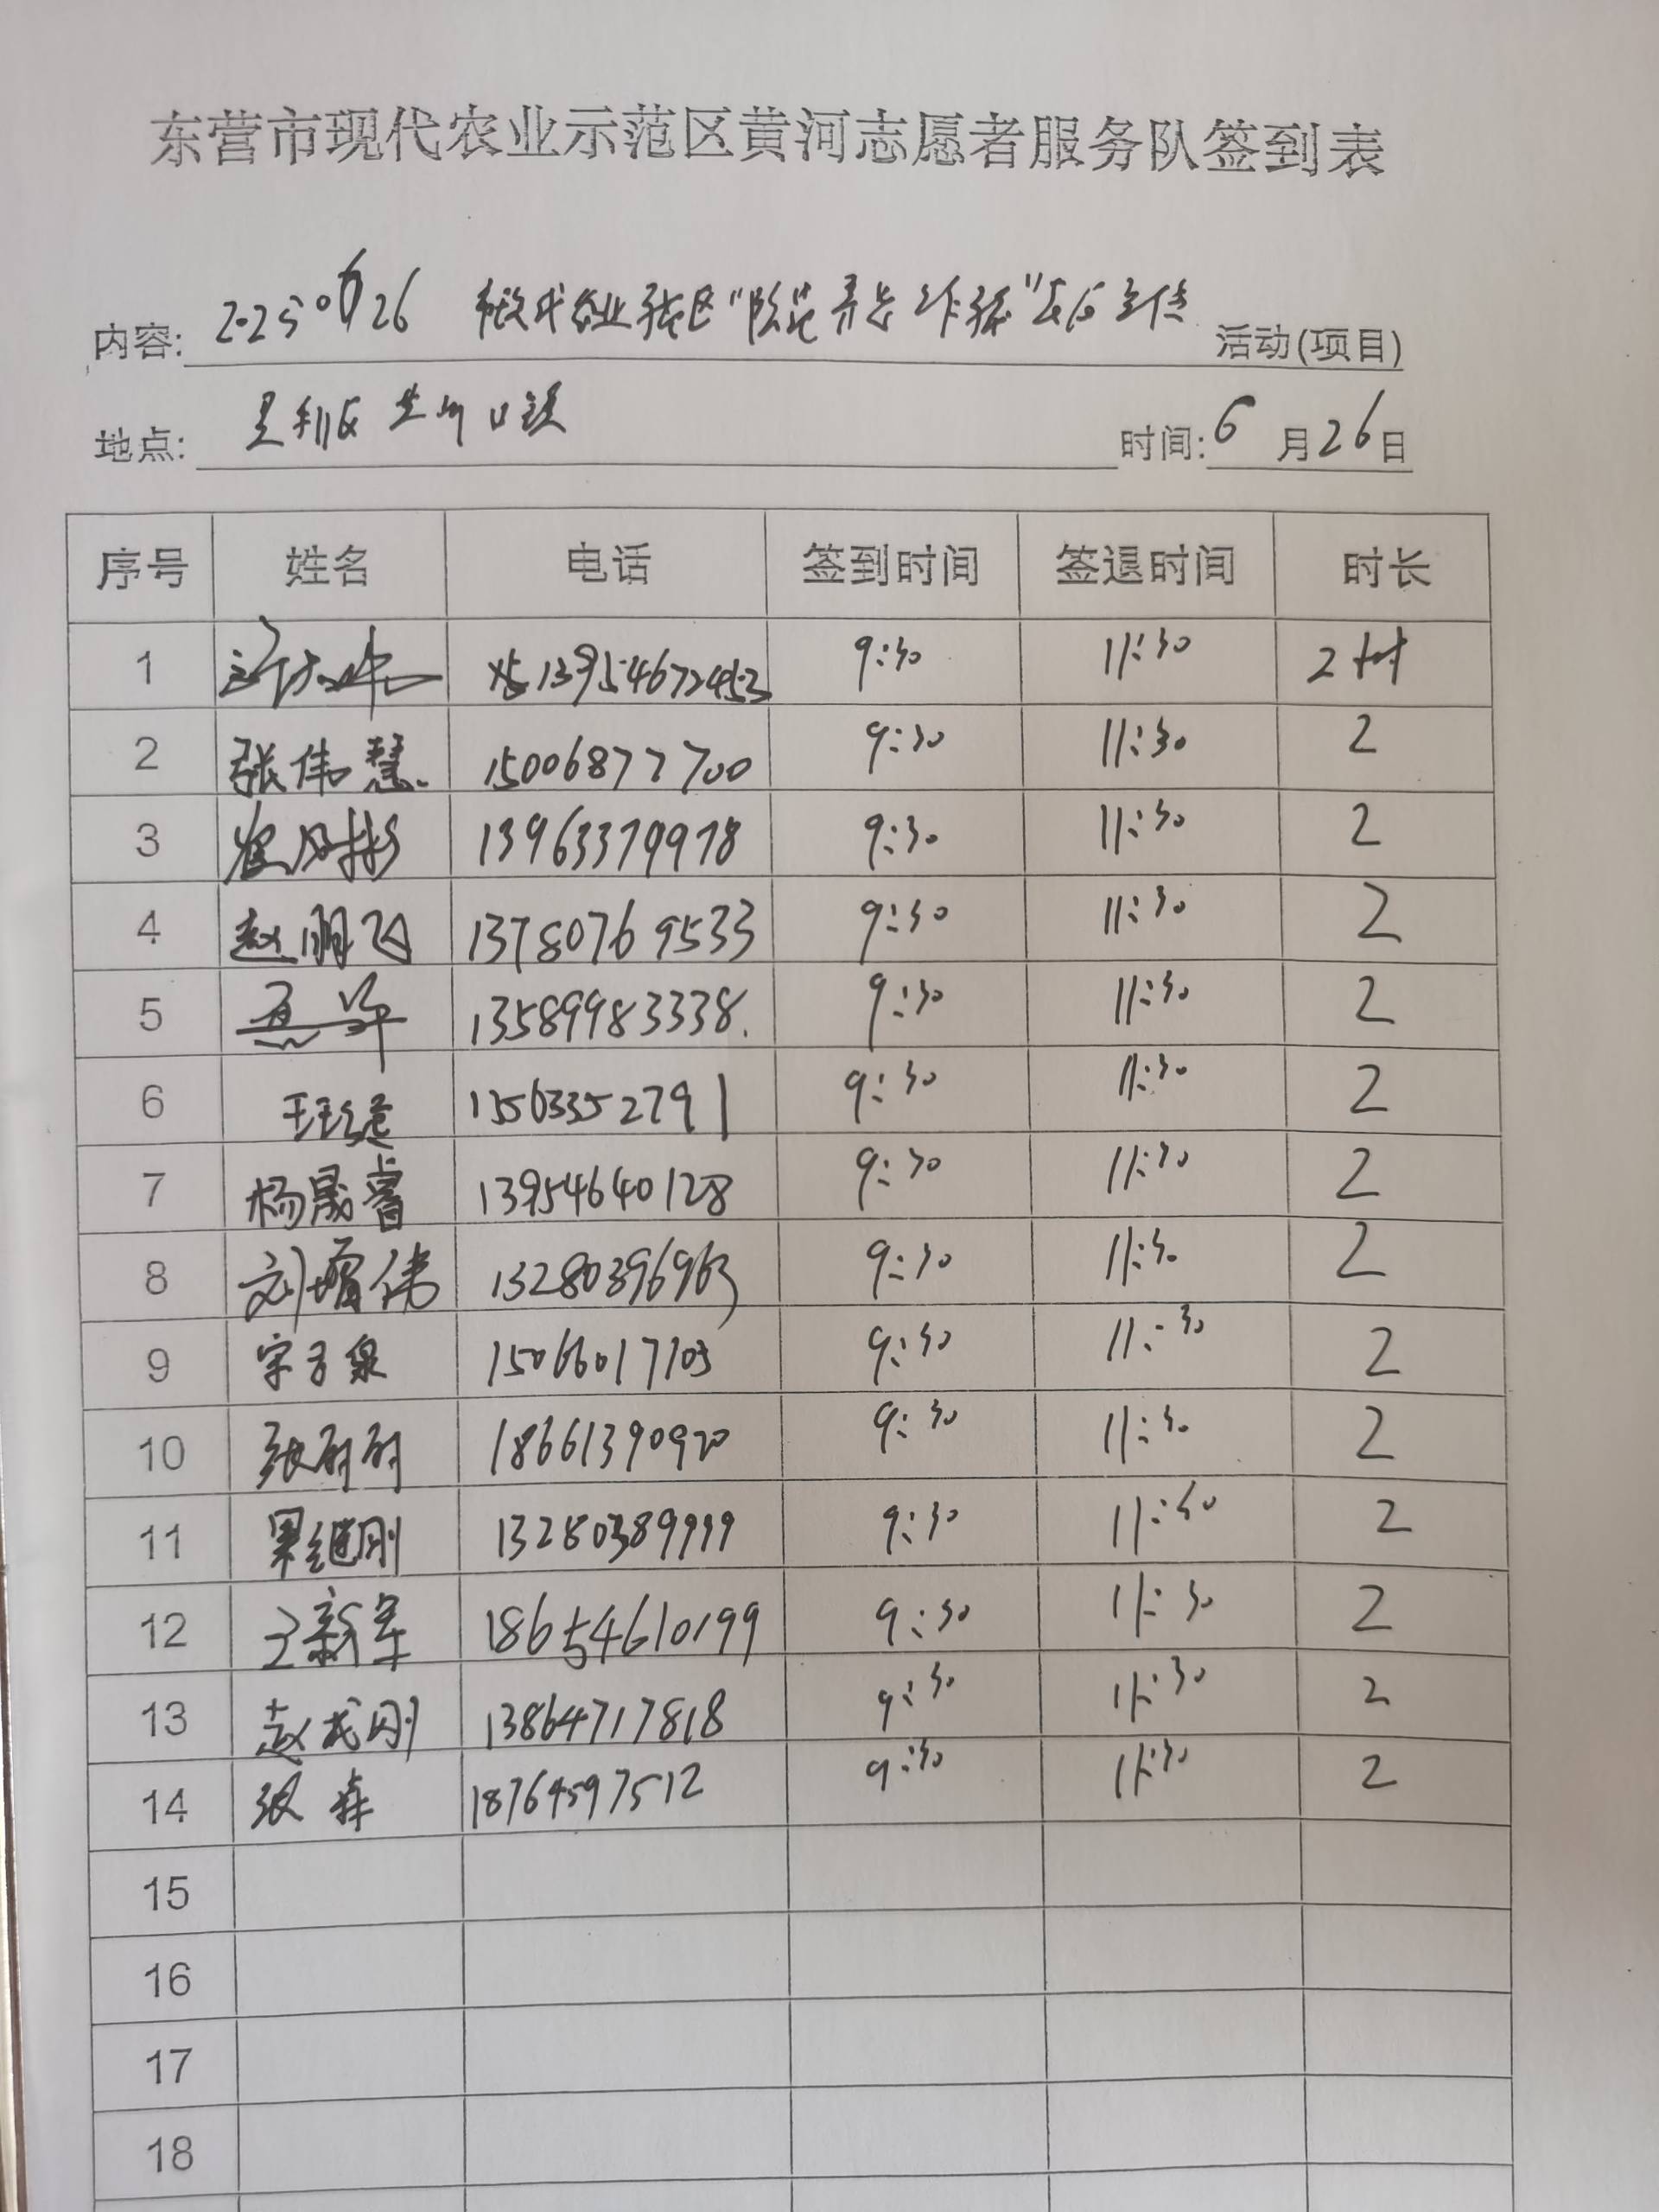 东营市现代农业示范区黄河志愿者服务队签到表
内容: 活动(项目)
地点: 垦利区黄河口镇 时间: 6 月 26 日
序号 姓名 电话 签到时间 签退时间 时长
1 13954672453 9:30 11:30 2小时
2 张伟慧 15006877700 9:30 11:30 2
3 13963379978 9:30 11:30 2
4 赵鹏飞 13780769533 9:30 11:30 2
5 13589983338. 9:30 11:30 2
6 15563352791 9:30 11:30 2
7 杨晟睿 13954640128 9:30 11:30 2
8 刘增伟 13280396963 9:30 11:30 2
9 宋子泉 15066017103 9:30 11:30 2
10 张丽丽 18661390920 9:30 11:30 2
11 继刚 13280389999 9:30 11:30 2
12 王新军 18654610199 9:30 11:30 2
13 赵成刚 13864717818 9:30 11:30 2
14 张森 18764597512 9:30 11:30 2
15
16
17
18